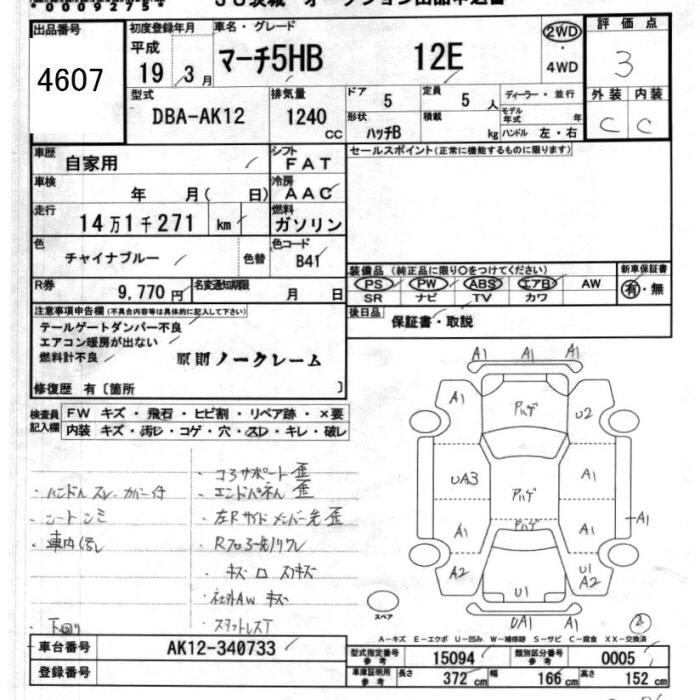 00092754
JU茨城 オークション出品申込書
出品番号
4607
初度登録年月
平成
19 3月
車名・グレード
マーチ5HB 12E
2WD
・
4WD
評価点
3
外装 内装
C C
型式
DBA-AK12
排気量
1240 cc
ドア 5
定員 5 人
形状 ハッチB
積載 kg
ディーラー・並行
モデル年式 年
ハンドル 左・右
車歴 自家用
シフト FAT
車検 年 月( 日)
冷房 AAC
走行 14万1千271 km
燃料 ガソリン
色 チャイナブルー
色替
色コード B41
R券 9,770円
名変通知期限 月 日
セールスポイント(正常に機能するものに限ります)
装備品(純正品に限り○をつけてください)
PS PW ABS エアB AW
SR ナビ TV カワ
新車保証書
有・無
後日品 保証書・取説
注意事項申告欄(不具合内容等は具体的に記入して下さい)
テールゲートダンパー不良
エアコン暖房が出ない
燃料計不良
原則ノークレーム
修復歴 有〔箇所 〕
検査員記入欄
FW キズ・飛石・ヒビ割・リペア跡・×要
内装 キズ・汚レ・コゲ・穴・スレ・キレ・破レ
・コアサポート歪
・ハンドル スレ カバー付
・エンドパネル 歪
・シートシミ
・左Rサイドメンバー先歪
・車内汚レ
・キズ ロ スリキズ
・社外AW キズ
・下回り
・スタットレスT
A1 A1 A1
A1 アハゲ U2
UA3 アハゲ A1
アハゲ
A1 A1 A1
A2 U1 A2
U1
UA1 A1
スペア
2
A-キズ E-エクボ U-凹み W-補修跡 S-サビ C-腐食 XX-交換済
車台番号 AK12-340733
登録番号
型式指定番号 参考 15094
類別区分番号 参考 0005
車庫証明用 参考 長さ 372 cm 幅 166 cm 高さ 152 cm